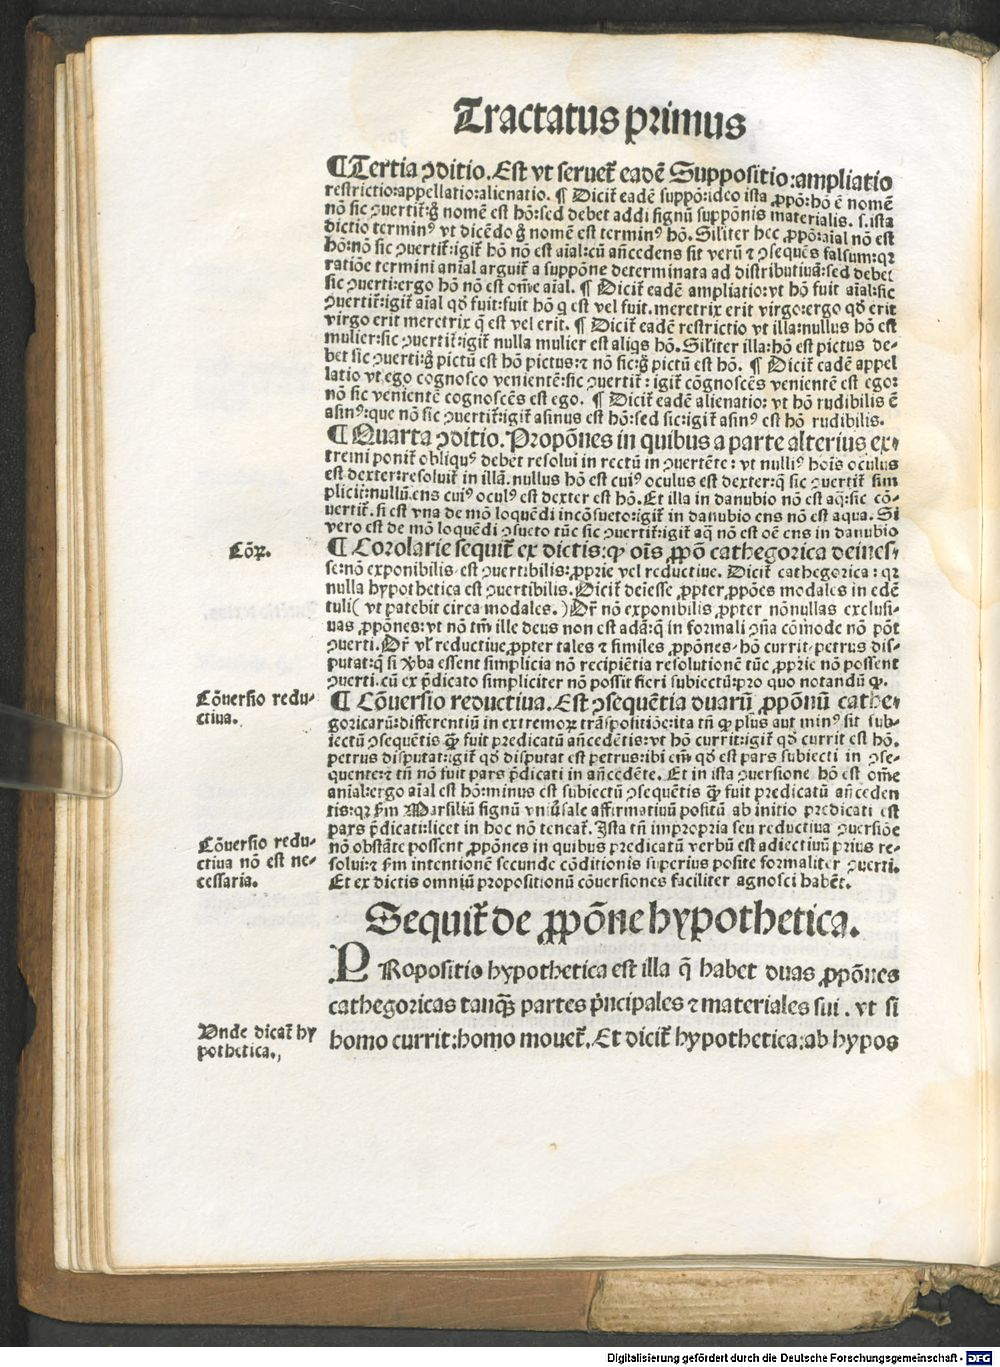 Tractatus primus
¶ Tertia ↄditio. Est vt seruet᷑ eadē Suppositio: ampliatio
restrictio: appellatio: alienatio. ¶ Dicit᷑ eadē suppō: ideo ista ꝓpō: hō ē nomē
nō sic ↄuertit᷑: g̊ nomē est hō: sed debet addi signū suppōnis materialis. s. ista
dictio terminꝰ vt dicēdo g̊ nomē est terminꝰ hō. Sil̄iter hec ꝓpō: aīal nō est
hō: nō sic ↄuertit᷑: igit᷑ hō nō est aīal: cū an̄cedens sit verū ⁊ ↄsequēs falsum: qꝛ
ratiōe termini anīal arguit᷑ a suppōne determinata ad distributiuā: sed debet
sic ↄuerti: ergo hō nō est om̄e aīal. ¶ Dicit᷑ eadē ampliatio: vt hō fuit aīal: sic
ↄuertit᷑: igit᷑ aīal qd̄ fuit: fuit hō q̇ est vel fuit. meretrix erit virgo: ergo qd̄ erit
virgo erit meretrix q̄ est vel erit. ¶ Dicit᷑ eadē restrictio vt illa: nullus hō est
mulier: sic ↄuertit᷑: igit᷑ nulla mulier est aliqs hō. Sil̄iter illa: hō est pictus de-
bet sic ↄuerti: g̊ pictū est hō pictus: ⁊ nō sic: g̊ pictū est hō. ¶ Dicit᷑ eadē appel
latio vt ego cognosco venientē: sic ↄuertit᷑: igit᷑ cōgnoscēs venientē est ego:
nō sic venientē cognoscēs est ego. ¶ Dicit᷑ eadē alienatio: vt hō rudibilis ē
asinꝰ: que nō sic ↄuertit᷑: igit᷑ asinus est hō: sed sic: igit᷑ asinꝰ est hō rudibilis.
¶ Quarta ↄditio. Propōnes in quibus a parte alterius ex-
tremi ponit᷑ obliquꝰ debēt resolui in rectū in ↄuertēte: vt nulliꝰ hoīs oculus
est dexter: resoluit᷑ in illā. nullus hō est cuiꝰ oculus est dexter: q̄ sic ↄuertit᷑ sim
plicit᷑: nullū ens cuiꝰ oculꝰ est dexter est hō. Et illa in danubio nō est aq̄: sic cō-
uertit᷑. si est vna de mō loquēdi incōsueto: igit᷑ in danubio ens nō est aqua. Si
vero est de mō loquēdi ↄsueto tūc sic ↄuertit᷑: igit᷑ aq̄ nō est oē ens in danubio
Cōꝝ.
¶ Corolarie sequit᷑ ex dictis: ꝙ oīs ꝓpō cathegorica deines-
se: nō exponibilis est ↄuertibilis: ꝓprie vel reductiue. Dicit᷑ cathegorica: qꝛ
nulla hypothetica est ↄuertibilis. Dicit᷑ deiesse ꝓpter ꝓpōes modales in edē
tuli( vt patebit circa modales. ) Dr̄ nō exponibilis ꝓpter nōnullas exclusi-
uas ꝓpōnes: vt nō tm̄ ille deus non est adā: q̄ in formali ↄn̄a cōmode nō pōt
ↄuerti. Dr̄ vl̄ reductiue ꝓpter tales ⁊ similes ꝓpōnes, hō currit, petrus dis-
putat: q̄ si v̓ba essent simplicia nō recipiētia resolutionē tūc ꝓprie nō possent
ↄuerti. cū ex p̄dicato simpliciter nō possit fieri subiectū: pro quo notandū ꝙ.
Cōuersio redu-
ctiua.
¶ Cōuersio reductiua. Est ↄsequētia duarū ꝓpōnū cathe-
goricarū: differentiū in extremoꝝ trāspositiōe: ita tn̄ ꝙ plus aut minꝰ sit sub-
iectū ↄsequētis ꝙ̄ fuit predicatū an̄cedētis: vt hō currit: igit᷑ qd̄ currit est hō.
petrus disputat: igit᷑ qd̄ disputat est petrus: ibi em̄ qd̄ est pars subiecti in ↄse-
quente: ⁊ tn̄ nō fuit pars p̄dicati in an̄cedēte. Et in ista ↄuersione hō est om̄e
anīal: ergo aīal est hō: minus est subiectū ↄsequētis ꝙ̄ fuit predicatū an̄ceden
tis: qꝛ ẜm Marsiliū signū vniu̓sale affirmatiuū positū ab initio predicati est
pars p̄dicati: licet in hoc nō teneat᷑. Ista tn̄ impropria seu reductiua ↄuersiōe
Cōuersio redu-
ctiua nō est ne-
cessaria.
nō obstāte possent ꝓpōnes in quibus predicatū verbū est adiectiuū prius re-
solui: ⁊ ẜm intentionē secunde cōditionis superius posite formaliter ↄuerti.
Et ex dictis omniū propositionū cōuersiones faciliter agnosci habēt.
Sequit᷑ de ꝓpōne hypothetica.
PRopositio hypothetica est illa q̄ habet duas ꝓpōnes
cathegoricas tanꝙ̄ partes p̓ncipales ⁊ materiales sui. vt si
Vnde dicat᷑ hy
pothetica.
homo currit: homo mouet᷑. Et dicit᷑ hypothetica: ab hypos
Digitalisierung gefördert durch die Deutsche Forschungsgemeinschaft - DFG